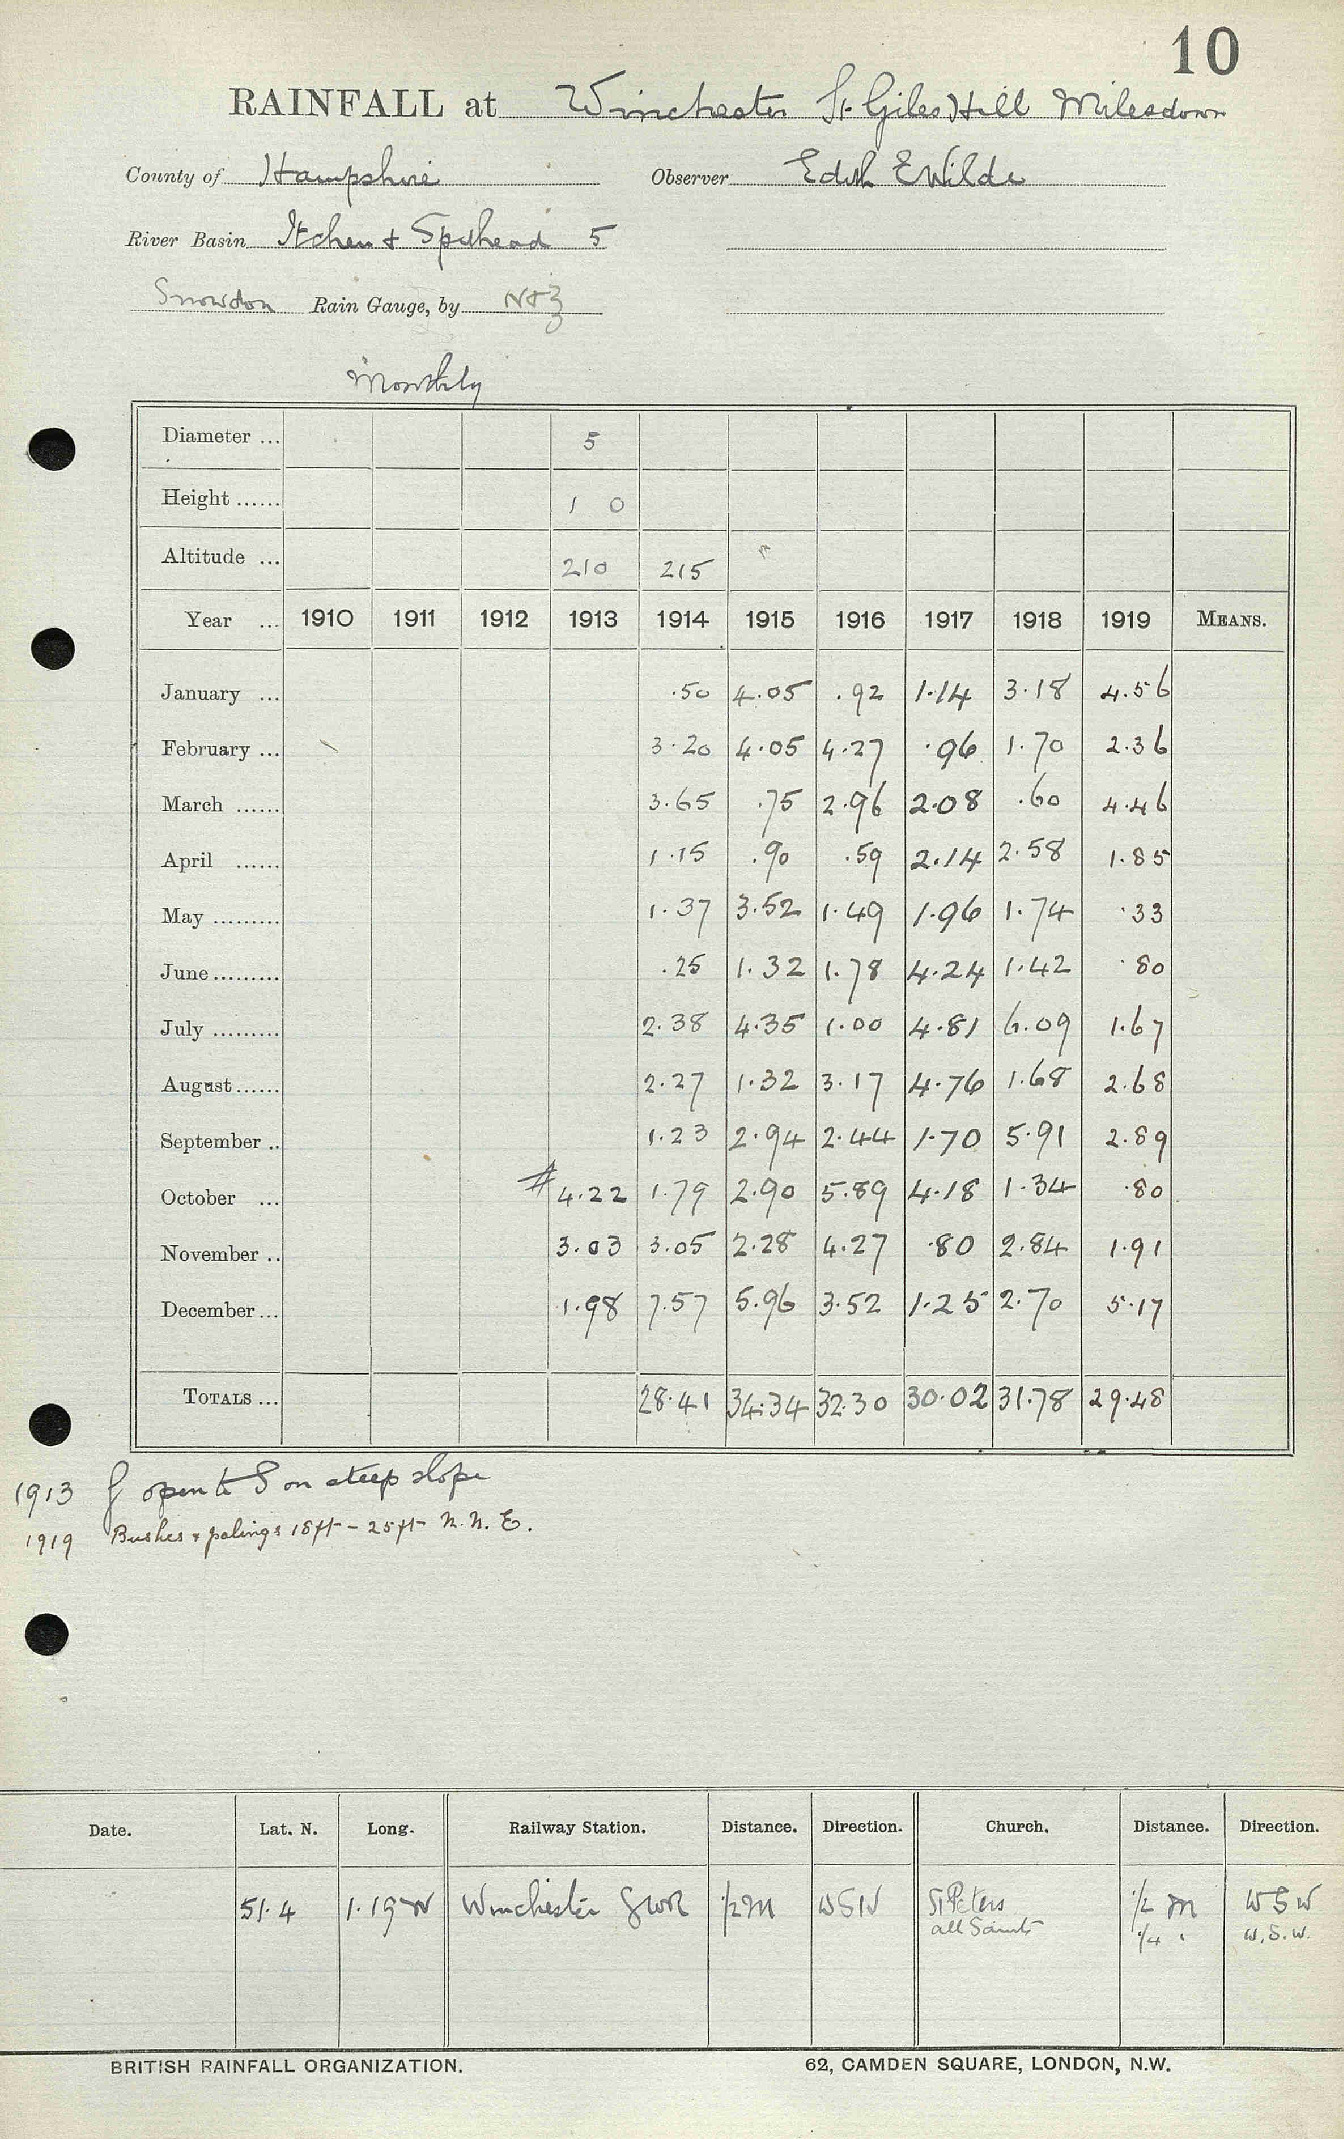 10
RAINFALL at Winchester St. Giles Hill Milesdown
County of Hampshire Observer Edith E Wilde
River Basin Itchen & Spithead 5
Snowdon Rain Gauge, by N&Z
Monthly
Diameter ... 5
Height ...... 1 0
Altitude ... 210 215 "
Year ... 1910 1911 1912 1913 1914 1915 1916 1917 1918 1919 MEANS.
January ... .50 4.05 .92 1.14 3.18 4.56
February ... 3.20 4.05 4.27 .96 1.70 2.36
March ...... 3.65 .75 2.96 2.08 .60 4.46
April ...... 1.15 .90 .59 2.14 2.58 1.85
May ......... 1.37 3.52 1.49 1.96 1.74 .33
June ......... .25 1.32 1.78 4.24 1.42 .80
July ......... 2.38 4.35 1.00 4.81 6.09 1.67
August ...... 2.27 1.32 3.17 4.76 1.68 2.68
September .. 1.23 2.94 2.44 1.70 5.91 2.89
October ... # 4.22 1.79 2.90 5.89 4.18 1.34 .80
November .. 3.03 3.05 2.28 4.27 .80 2.84 1.91
December ... 1.98 7.57 5.96 3.52 1.25 2.70 5.17
TOTALS ... 28.41 34.34 32.30 30.02 31.78 29.48
1913 G open to S on steep slope
1919 Bushes & palings 18ft - 25ft N.N.E.
Date. Lat. N. Long. Railway Station. Distance. Direction. Church. Distance. Direction.
51.4 1.19 W Winchester GWR 1/2 M WSW St Peters 1/2 M WSW
all Saints 1/4 " W.S.W.
BRITISH RAINFALL ORGANIZATION. 62, CAMDEN SQUARE, LONDON, N.W.